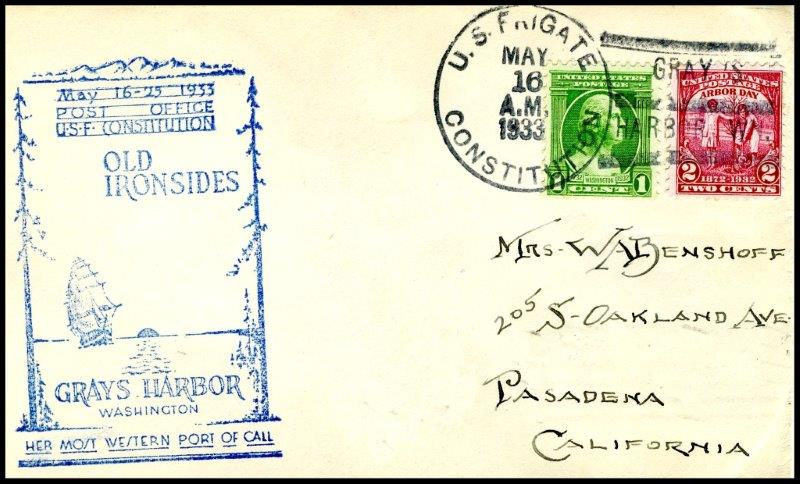 May 16-25 1933
POST OFFICE
U.S.F. CONSTITUTION
OLD
IRONSIDES
GRAYS HARBOR
WASHINGTON
HER MOST WESTERN PORT OF CALL
U.S. FRIGATE
CONSTITUTION
MAY
16
A.M.
1933
GRAY'S
HARBOR W
UNITED STATES
POSTAGE
WASHINGTON
1 CENT 1
UNITED STATES POSTAGE
ARBOR DAY
1872-1932
2 TWO CENTS 2
Mrs. WABenshoff
205 S-Oakland Ave.
Pasadena
California